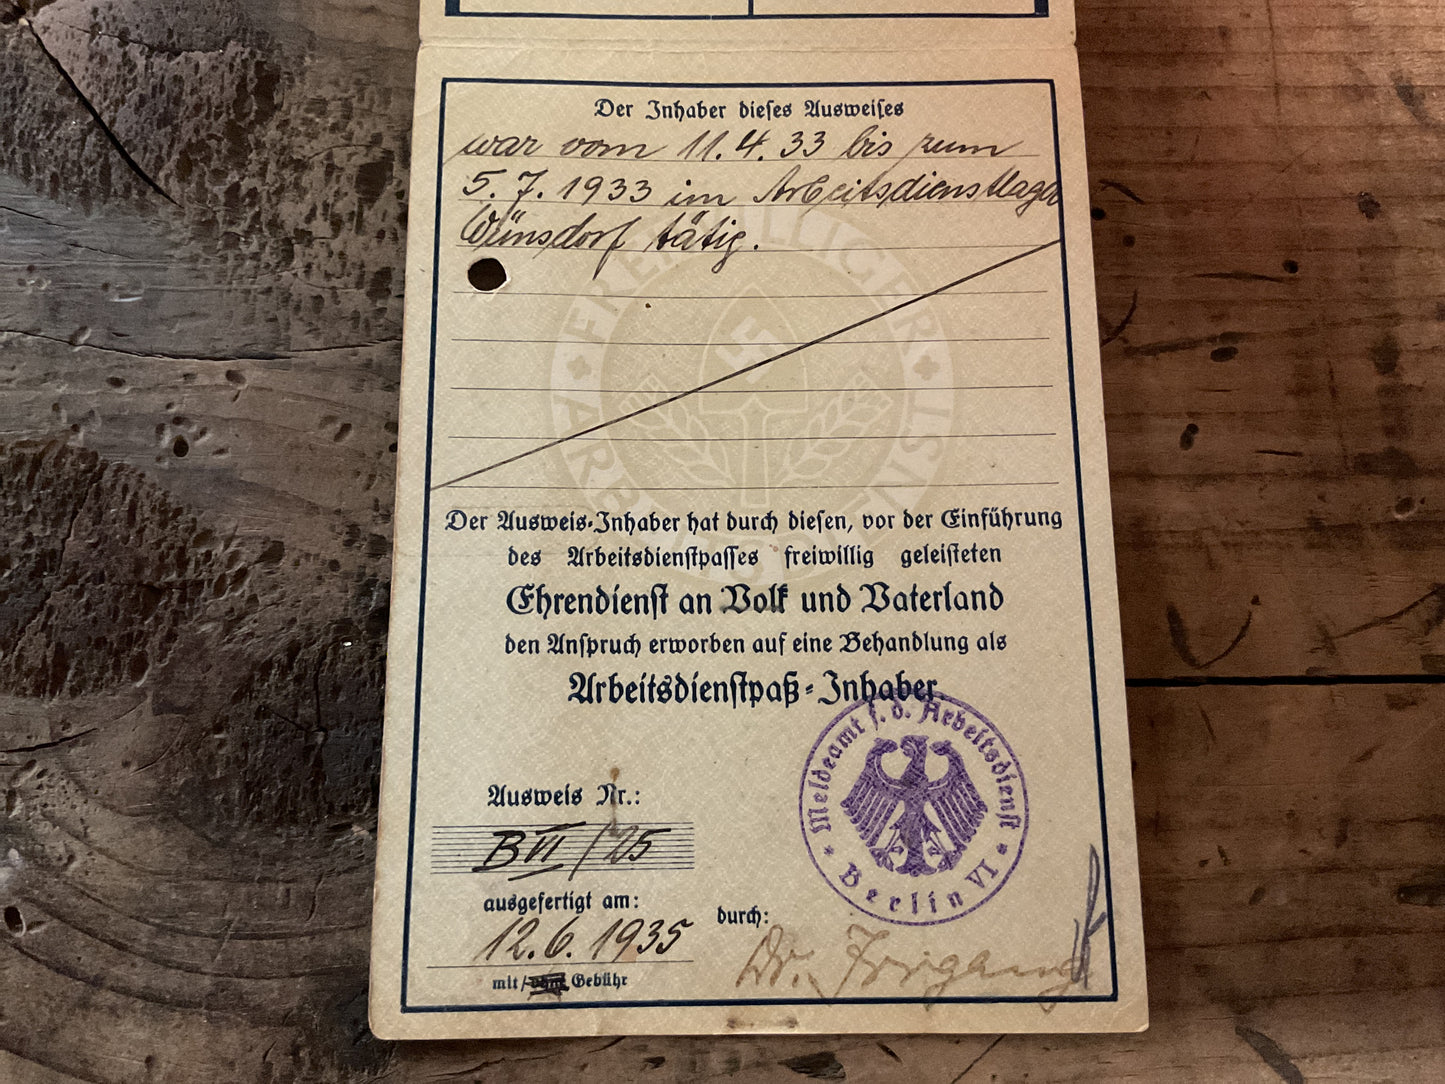 Der Inhaber dieses Ausweises
war vom 11. 4. 33 bis zum
5. 7. 1933 im Arbeitsdienstlager
Wünsdorf tätig.
FREIWILLIGER
ARBEITSDIENST
Der Ausweis-Inhaber hat durch diesen, vor der Einführung
des Arbeitsdienstpasses freiwillig geleisteten
Ehrendienst an Volk und Vaterland
den Anspruch erworben auf eine Behandlung als
Arbeitsdienstpaß-Inhaber
Meldeamt f. d. Arbeitsdienst
* Berlin VI *
Ausweis Nr.:
B VI / 75
ausgefertigt am:
12. 6. 1935
durch:
Dr. Irrgang
mit / ohne Gebühr